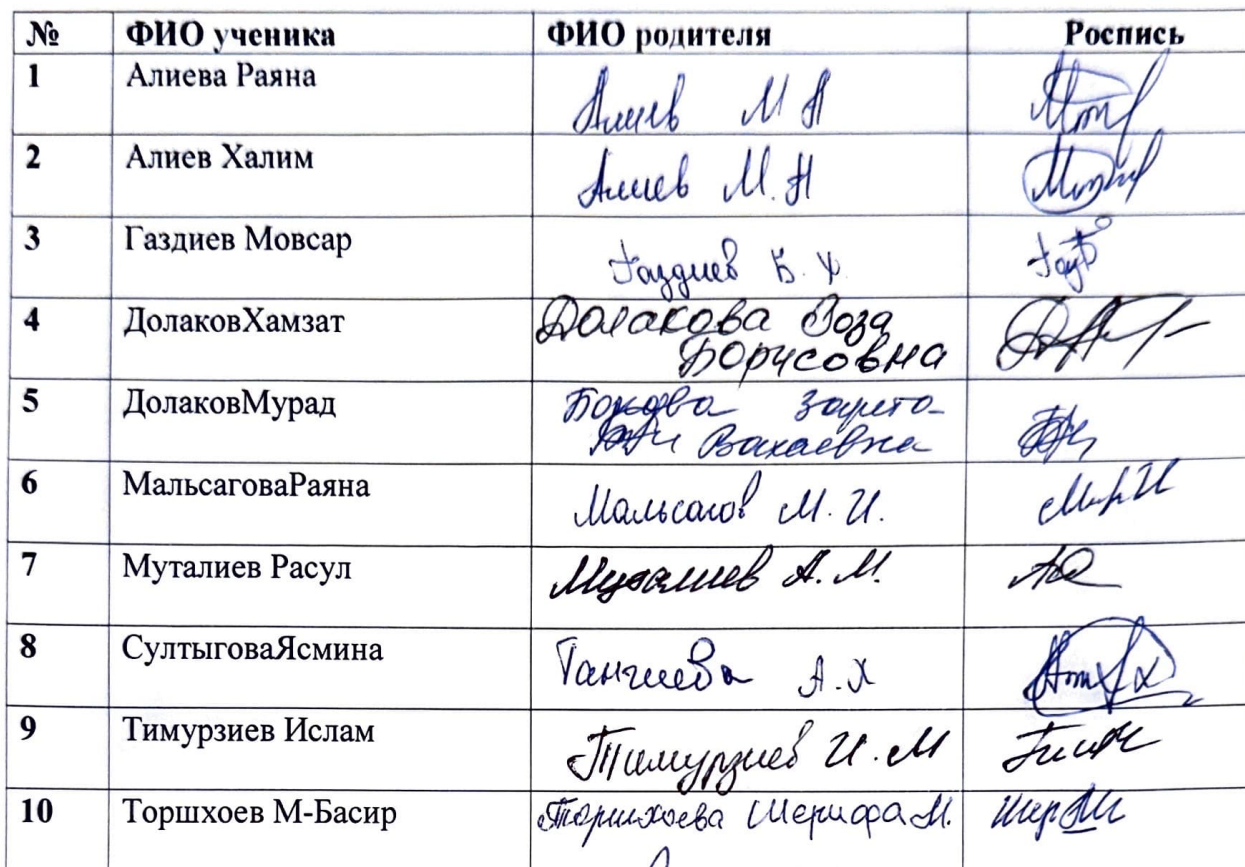 № ФИО ученика ФИО родителя Роспись
1 Алиева Раяна Алиев М А
2 Алиев Халим Алиев М. А
3 Газдиев Мовсар Газдиев Б. Х.
4 ДолаковХамзат Долакова Роза
Борисовна
5 ДолаковМурад
Вахаевна
6 МальсаговаРаяна Мальсагов М. И.
7 Муталиев Расул Муталиев А. М.
8 СултыговаЯсмина Тангиева А. Х
9 Тимурзиев Ислам Тимурзиев И. М
10 Торшхоев М-Басир Торшхоева Шерифа М.